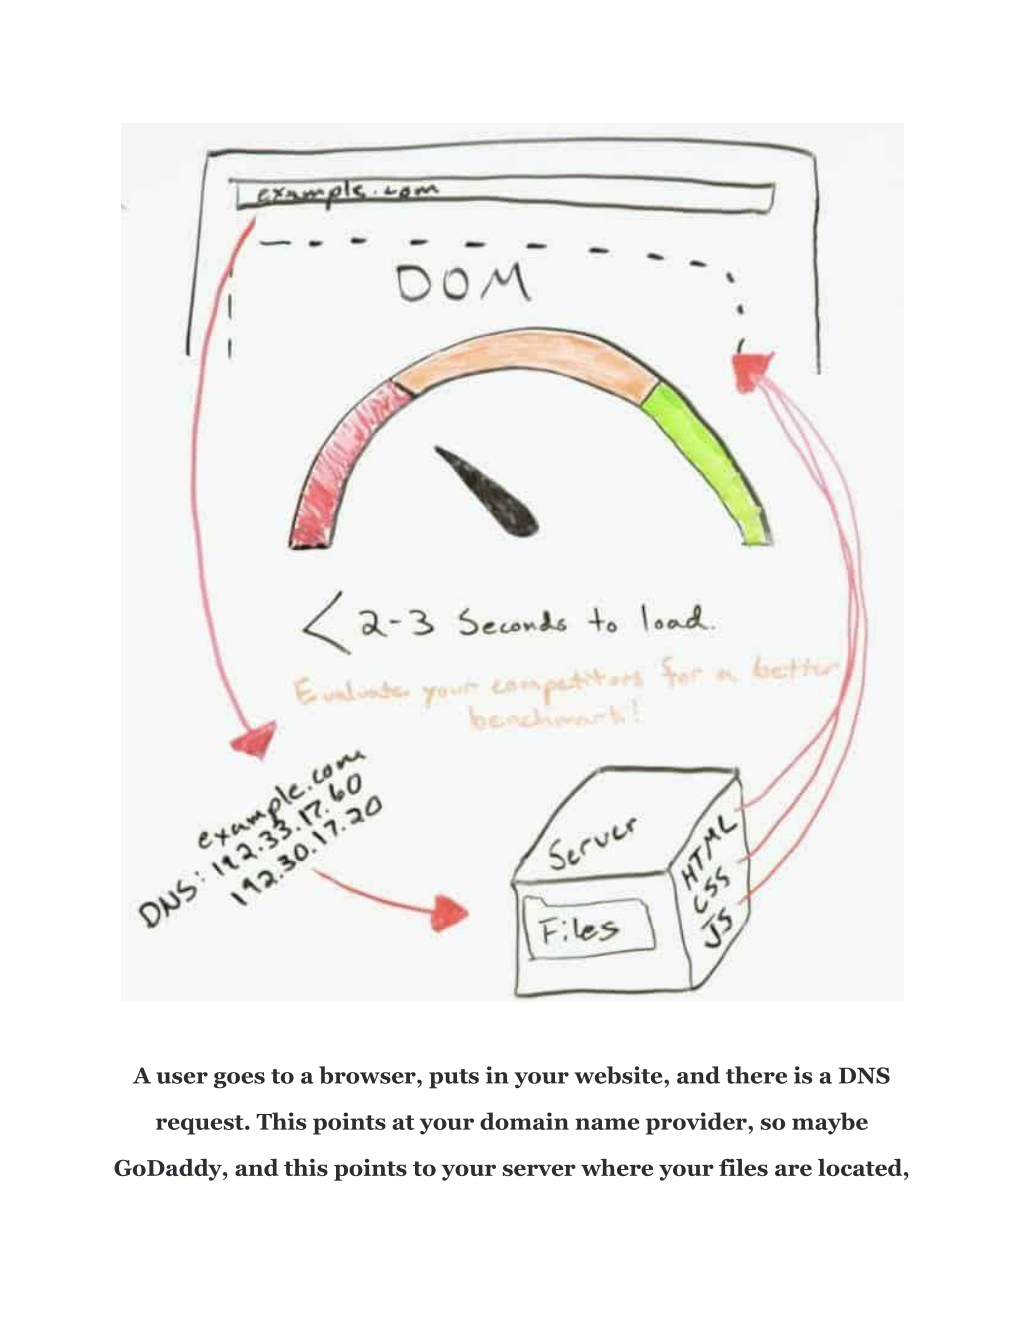 example.com
DOM
< 2-3 Seconds to load.
Evaluate your competitors for a better
benchmark!
example.com
DNS: 192.33.17.60
192.30.17.20
Server
Files
HTML
CSS
JS
A user goes to a browser, puts in your website, and there is a DNS
request. This points at your domain name provider, so maybe
GoDaddy, and this points to your server where your files are located,